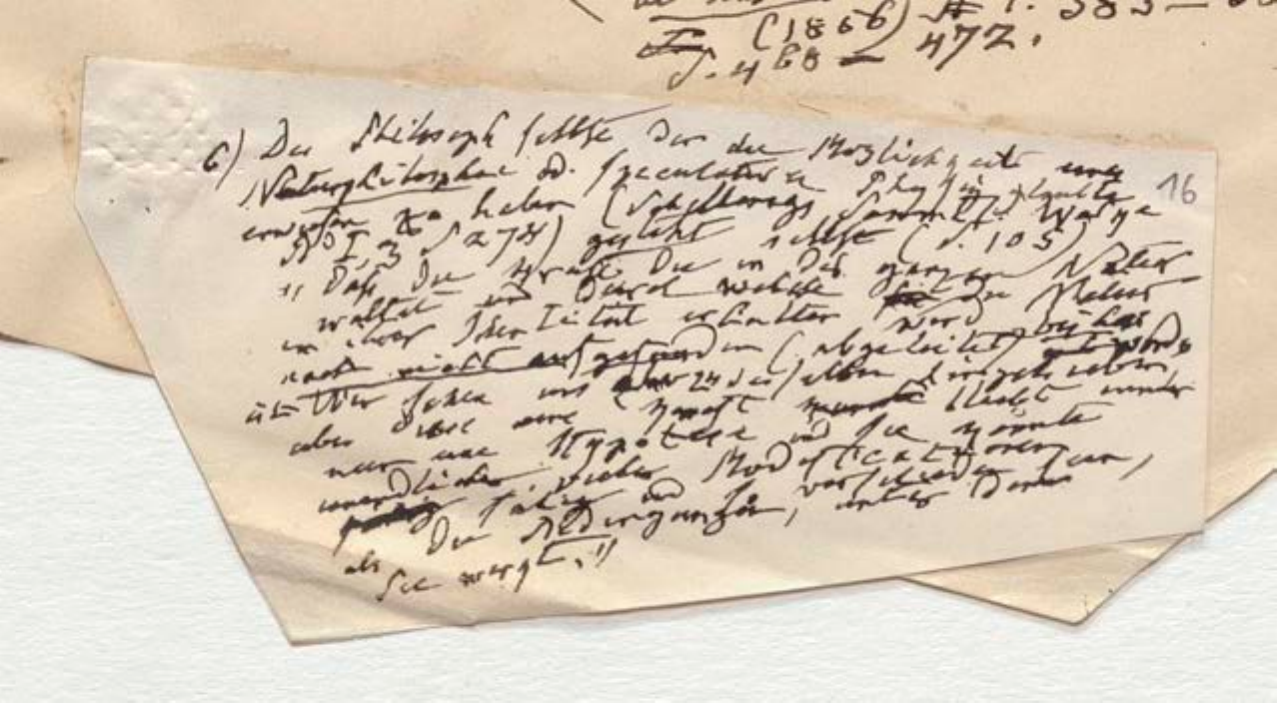 (1866)
S. 468 – 472.
16
6) Der Philosoph selbst der die Möglichkeit einer
Naturphilosophie od. speculativen Physik glaubte
erwiesen zu haben (Schellings Sämmtl. Werke
I, 3 S 274) gesteht selbst (S. 105)
"Daß die Kraft die in der ganzen Natur
waltet und durch welche die Natur
in ihrer Identität erhalten wird
noch nicht aufgefunden (abgeleitet)
Wir sehen uns zu derselben hingetrieben
aber diese eine Kraft bleibt immer
nur eine Hypothese und sie könnte
unendlich vieler Modificationen
fähig und so verschieden sein,
als die Bedingungen, unter denen
sie wirkt."